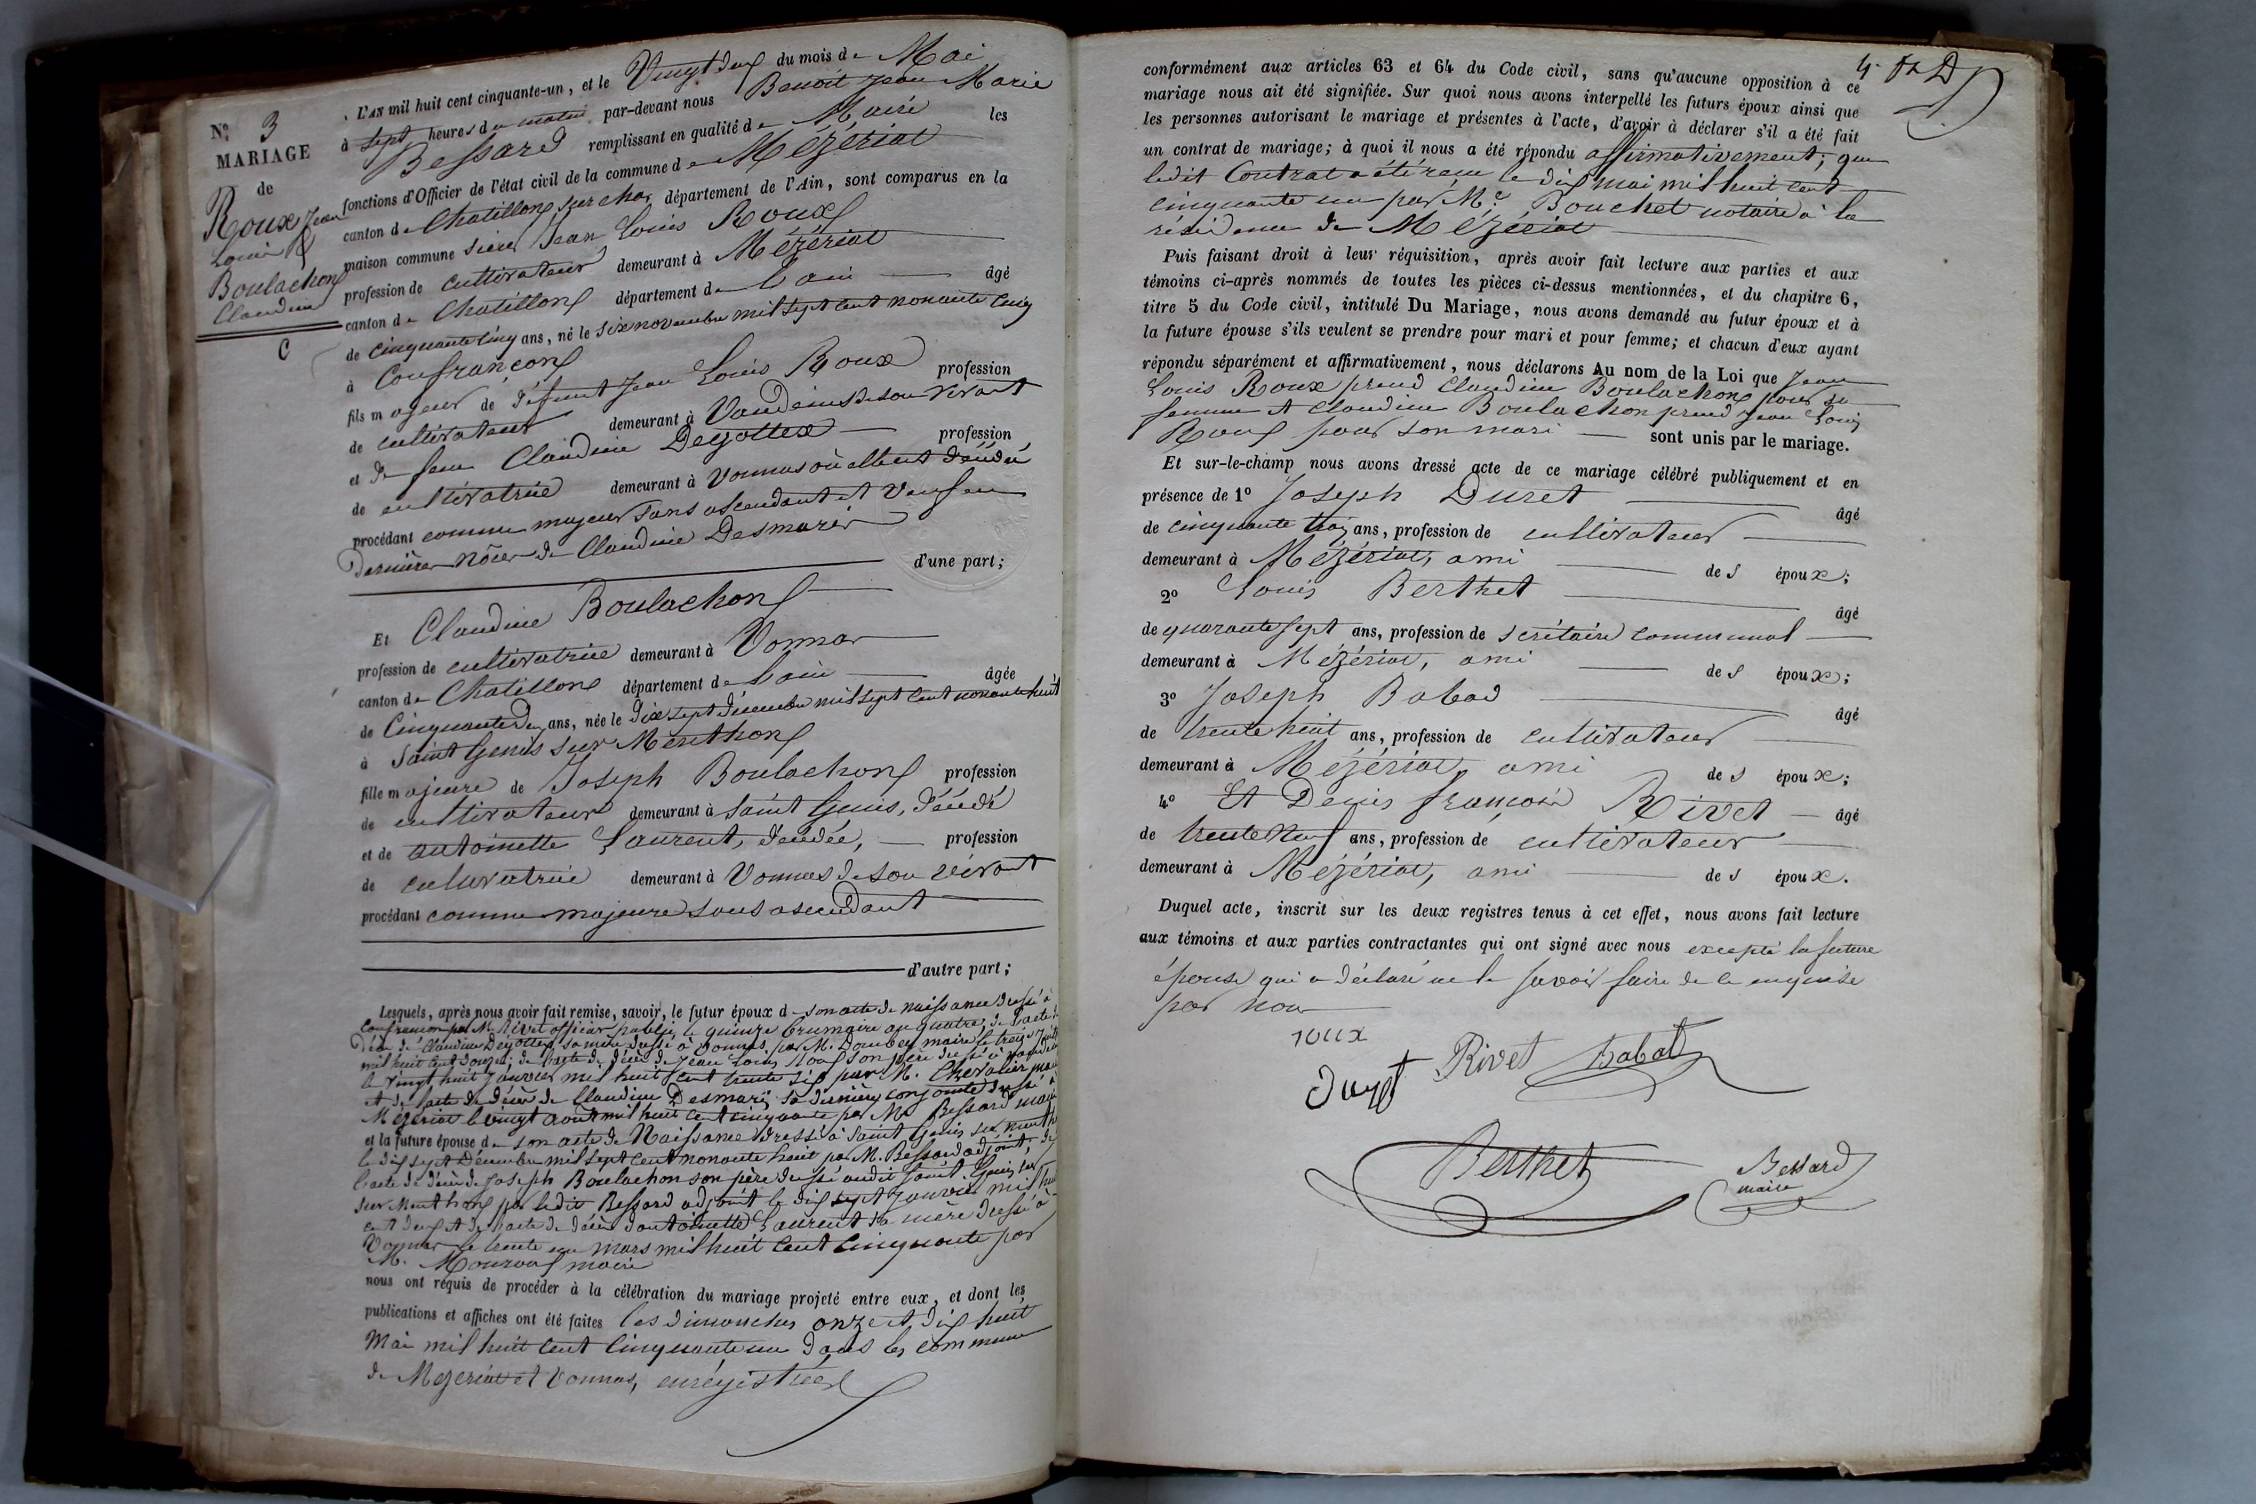 N° 3
MARIAGE
de
Roux Jean
Louis &
Boulachon
Claudine
C
L'AN mil huit cent cinquante-un, et le Vingt deux du mois de Mai
à sept heures du matin par-devant nous Benoit Jean Marie
Bessard remplissant en qualité de Maire les
fonctions d'Officier de l'état civil de la commune de Mézériat
canton de Chatillon sur char département de l'Ain, sont comparus en la
maison commune sieur Jean Louis Roux
profession de cultivateur demeurant à Mézériat
canton de Chatillon département de L'ain âgé
de cinquante cinq ans, né le six novembre mil sept cent nonante cinq
à Confrançon
fils majeur de défunt Jean Louis Roux profession
de cultivateur demeurant à Vandeins de son vivant
et de feue Claudine Deyottex profession
de cultivatrice demeurant à Vonnas où elle est décédée
procédant comme majeur sans ascendant et veuf en
dernières nôces de Claudine Desmaris
d'une part;
Et Claudine Boulachon
profession de cultivatrice demeurant à Vonnas
canton de Chatillon département de L'ain âgée
de Cinquante deux ans, née le dix sept décembre mil sept cent nonante huit
à Saint Genis sur Menthon
fille majeure de Joseph Boulachon profession
de cultivateur demeurant à Saint Genis, décédé
et de antoinette Laurent, décédée, profession
de cultivatrice demeurant à Vonnas de son vivant
procédant comme majeure sans ascendant
d'autre part;
Lesquels, après nous avoir fait remise, savoir, le futur époux de son acte de naissance dressé à
Confrançon par M. Rivet officier public, le quinze brumaire an quatre, de l'acte de
décès de Claudine Deyottex sa mère dressé à Vonnas par M. Dombey maire le treize
mil huit cent douze; de l'acte de décès de Jean Louis Roux son père dressé à Vandeins
le vingt huit Janvier mil huit cent trente six par M. Chevalier maire
et de l'acte de décès de Claudine Desmaris sa dernière conjointe dressé à
Mézériat le vingt août mil huit cent cinquante par M. Bessard maire
et la future épouse de son acte de Naissance dressé à Saint Genis sur menthon
le dix sept Décembre mil sept cent nonante huit par M. Bessard adjoint; de
l'acte de décès de Joseph Boulachon son père dressé audit Saint Genis sur
sur Menthon par ledit Bessard adjoint le dix sept Janvier mil huit
cent deux et de l'acte de décès d'antoinette Laurent sa mère dressé à
Vonnas le trente un mars mil huit cent cinquante par
M. maire
nous ont requis de procéder à la célébration du mariage projeté entre eux, et dont les
publications et affiches ont été faites les dimanches onze et dix huit
Mai mil huit cent cinquante un dans les communes
de Mézériat et Vonnas, enrégistrées
conformément aux articles 63 et 64 du Code civil, sans qu'aucune opposition à ce
mariage nous ait été signifiée. Sur quoi nous avons interpellé les futurs époux ainsi que
les personnes autorisant le mariage et présentes à l'acte, d'avoir à déclarer s'il a été fait
un contrat de mariage; à quoi il nous a été répondu affirmativement; que
ledit Contrat a été reçu le dix mai mil huit cent
cinquante un par Me. Bouchet notaire à la
résidence de Mézériat
Puis faisant droit à leur réquisition, après avoir fait lecture aux parties et aux
témoins ci-après nommés de toutes les pièces ci-dessus mentionnées, et du chapitre 6,
titre 5 du Code civil, intitulé Du Mariage, nous avons demandé au futur époux et à
la future épouse s'ils veulent se prendre pour mari et pour femme; et chacun d'eux ayant
répondu séparément et affirmativement, nous déclarons Au nom de la Loi que Jean
Louis Roux prend Claudine Boulachon pour sa
femme et Claudine Boulachon prend Jean Louis
Roux pour son mari sont unis par le mariage.
Et sur-le-champ nous avons dressé acte de ce mariage célébré publiquement et en
présence de 1° Joseph Duret âgé
de cinquante trois ans, profession de cultivateur
demeurant à Mézériat, ami des époux;
2° Louis Berthet âgé
de quarante sept ans, profession de secrétaire communal
demeurant à Mézériat, ami des époux;
3° Joseph Babad âgé
de trente huit ans, profession de cultivateur
demeurant à Mézériat, ami des époux;
4° Et Denis françois Rivet âgé
de trente neuf ans, profession de cultivateur
demeurant à Mézériat, ami des époux.
Duquel acte, inscrit sur les deux registres tenus à cet effet, nous avons fait lecture
aux témoins et aux parties contractantes qui ont signé avec nous excepté la future
épouse qui a déclaré ne le savoir faire de ce enquise
par nous
roux
Duret Rivet Babad
Berthet Bessard
maire